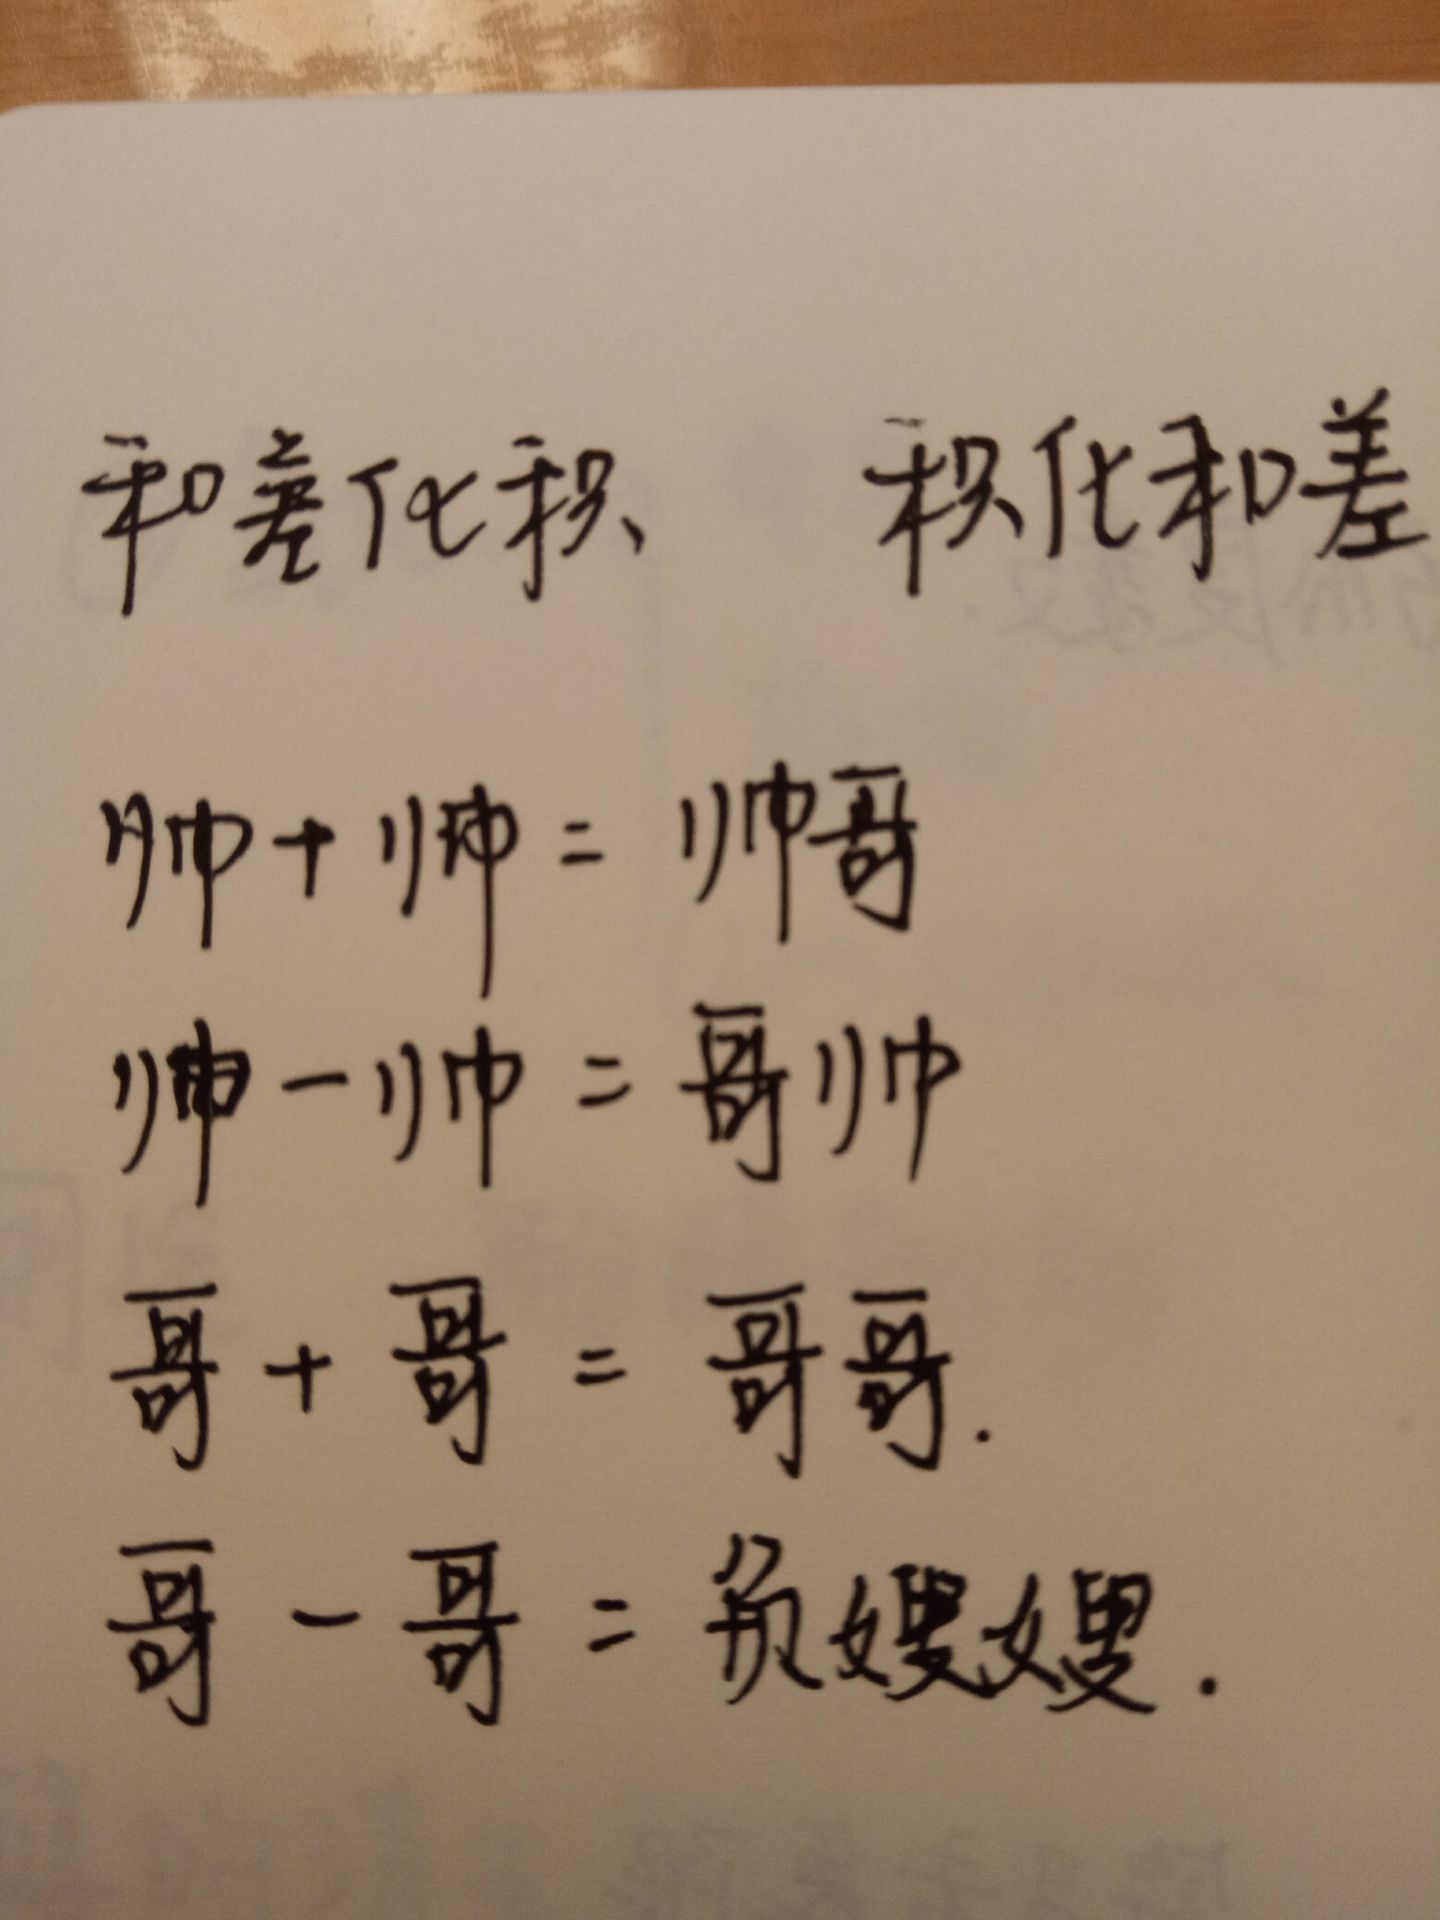 和差化积 积化和差
帅+帅=帅哥
帅-帅=哥帅
哥+哥=哥哥.
哥-哥=负嫂嫂.